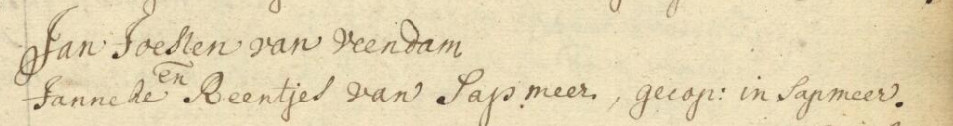 Jan Joesten van Veendam
en
Janneke Reentjes van Sapmeer, gecop: in Sapmeer.